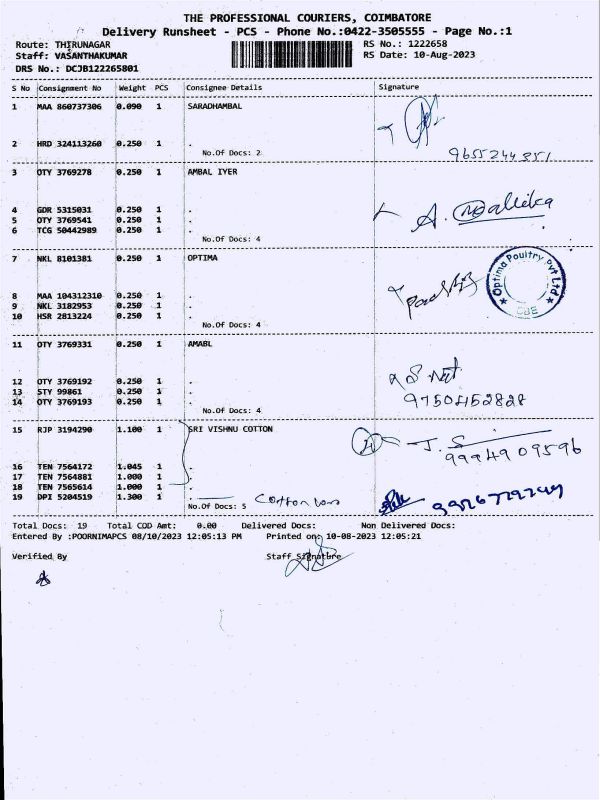 THE PROFESSIONAL COURIERS, COIMBATORE
Delivery Runsheet - PCS - Phone No.:0422-3505555 - Page No.:1
Route: THIRUNAGAR RS No.: 1222658
Staff: VASANTHAKUMAR RS Date: 10-Aug-2023
DRS No.: DCJB122265801
S No Consignment No Weight PCS Consignee Details Signature
1 MAA 860737306 0.090 1 SARADHAMBAL
2 HRD 324113260 0.250 1 .
No.Of Docs: 2 9655244351
3 OTY 3769278 0.250 1 AMBAL IYER
4 GDR 5315031 0.250 1 . A. Mallika
5 OTY 3769541 0.250 1 .
6 TCG 50442989 0.250 1 .
No.Of Docs: 4
7 NKL 8101381 0.250 1 OPTIMA
Optima Poultry Pvt Ltd
CBE
8 MAA 104312310 0.250 1 .
9 NKL 3182953 0.250 1 .
10 HSR 2813224 0.250 1 .
No.Of Docs: 4
11 OTY 3769331 0.250 1 AMABL
12 OTY 3769192 0.250 1 .
13 STY 99861 0.250 1 .
14 OTY 3769193 0.250 1 . 9750452828
No.Of Docs: 4
15 RJP 3194290 1.100 1 SRI VISHNU COTTON
9994909596
16 TEN 7564172 1.045 1 .
17 TEN 7564881 1.000 1 .
18 TEN 7565614 1.000 1 .
19 DPI 5204519 1.300 1 .
No.Of Docs: 5 Cotton
Total Docs: 19 Total COD Amt: 0.00 Delivered Docs: Non Delivered Docs:
Entered By :POORNIMAPCS 08/10/2023 12:05:13 PM Printed on: 10-08-2023 12:05:21
Verified By Staff Signature